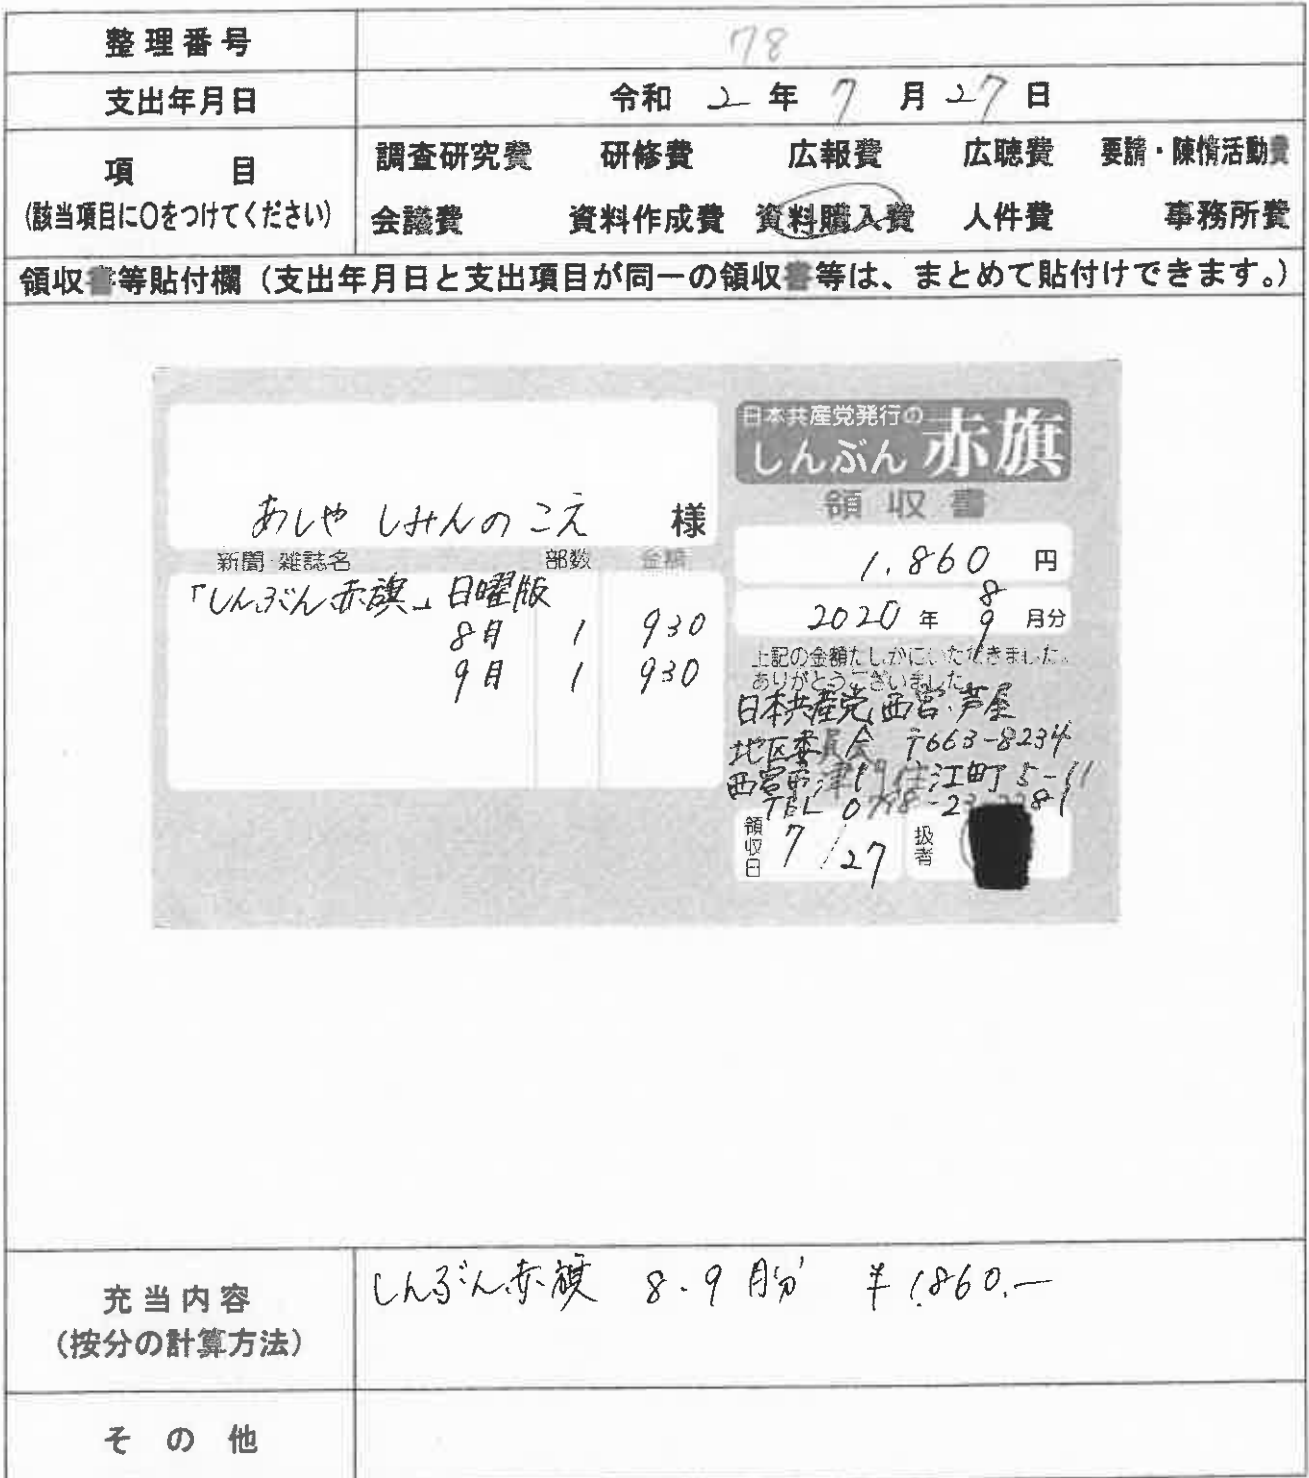 整理番号 78
支出年月日 令和 2 年 7 月 27 日
項 目
(該当項目に○をつけてください)
調査研究費 研修費 広報費 広聴費 要請・陳情活動費
会議費 資料作成費 資料購入費 人件費 事務所費
領収書等貼付欄（支出年月日と支出項目が同一の領収書等は、まとめて貼付けできます。）
あしや しみんのこえ 様
新聞・雑誌名 部数 金額
「しんぶん赤旗」日曜版
8月 1 930
9月 1 930
日本共産党発行の
しんぶん赤旗
領収書
1.860 円
2020 年 8 9 月分
上記の金額たしかにいただきました。
ありがとうございました。
日本共産党西宮・芦屋
地区委員会 〒663-8234
西宮市津門住江町5-11
TEL 0798-23-
領収日 7/27
扱者
充当内容
（按分の計算方法）
しんぶん赤旗 8.9月分 ¥1,860.—
その他